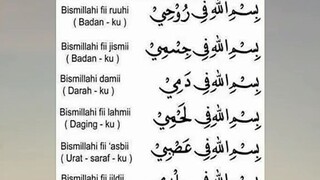 Bismillahi fii ruuhi بِسْمِ اللهِ فِى رُوْحِيْ
( Badan - ku )
Bismillahi fii jismii بِسْمِ اللهِ فِى جِسْمِيْ
( Badan - ku )
Bismillahi damii بِسْمِ اللهِ فِى دَمِيْ
( Darah - ku )
Bismillahi fii lahmii بِسْمِ اللهِ فِى لَحْمِيْ
( Daging - ku )
Bismillahi fii 'asbii بِسْمِ اللهِ فِى عَصَبِيْ
( Urat - saraf - ku )
Bismillahi fii jildii